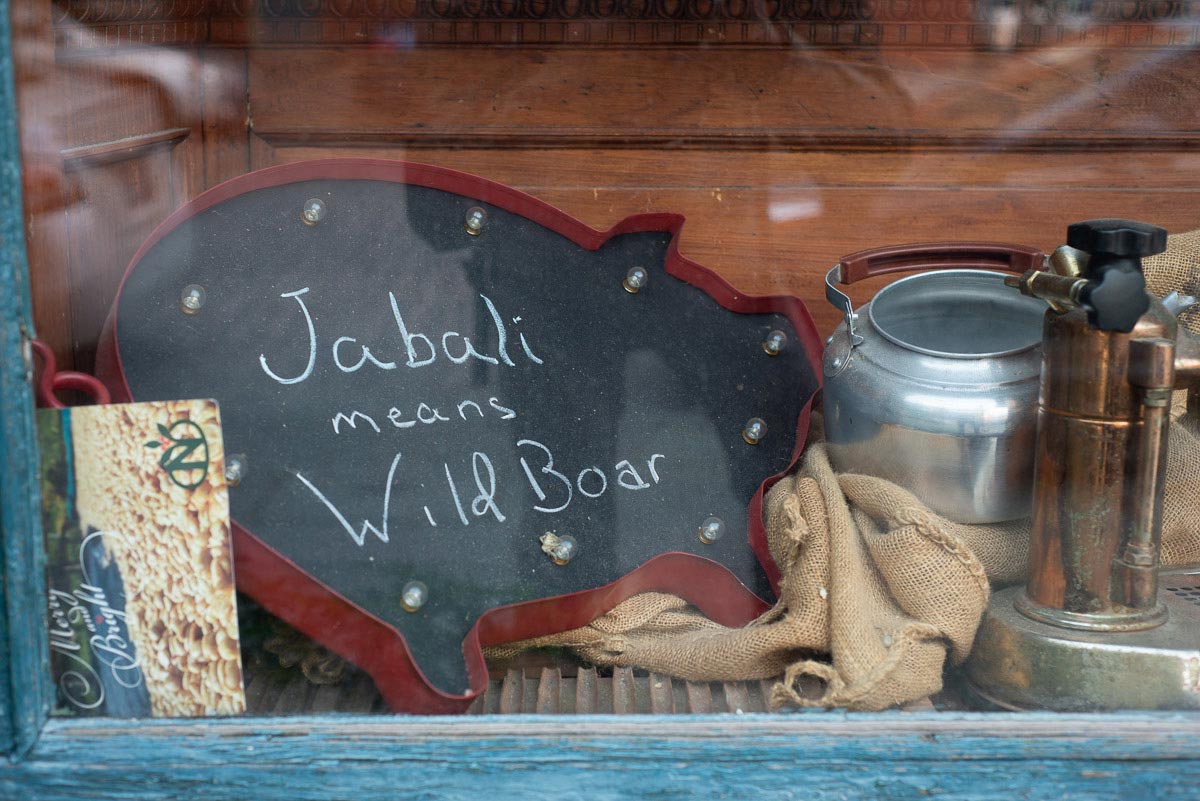 Jabali
means
Wild Boar
N
Merry
and
Bright